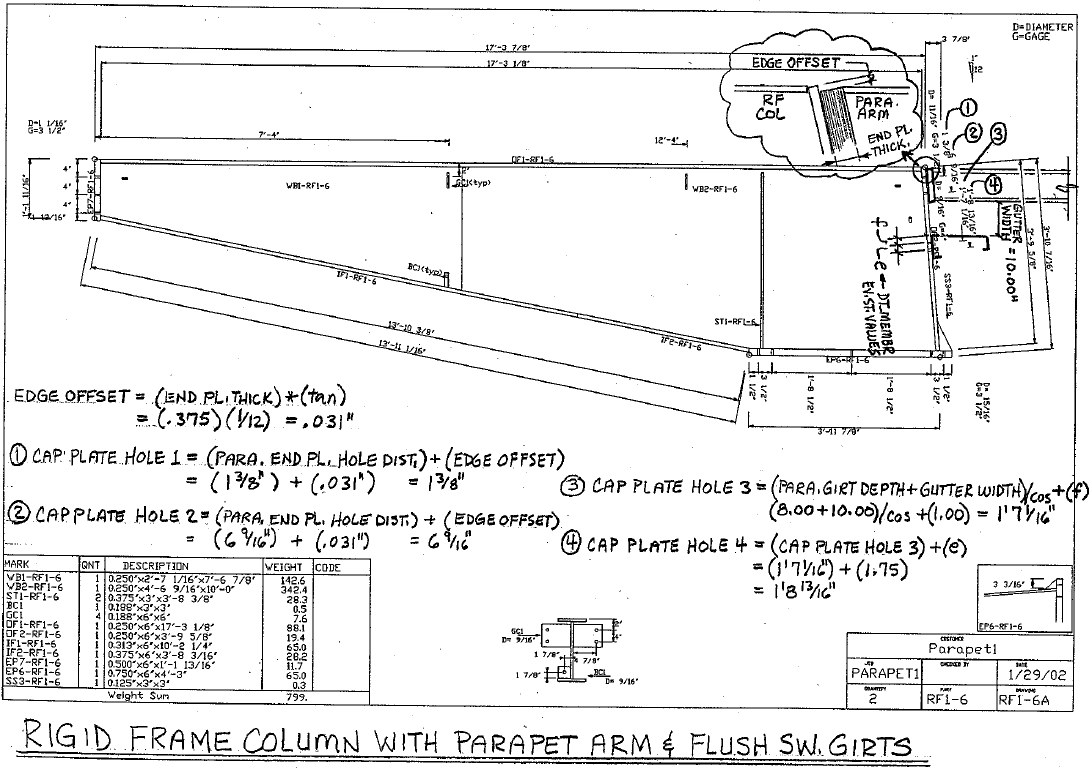 D=DIAMETER
G=GAGE
3 7/8"
17'-3 7/8"
17'-3 1/8"
12
EDGE OFFSET
RF COL
PARA. ARM
END PL THICK.
① ② ③ ④
D=1 1/16"
G=3 1/2"
7'-4"
12'-4"
OF1-RF1-6
4"
4"
4"
EP7-RF1-6
WB1-RF1-6
GC1(typ)
WB2-RF1-6
GUTTER WIDTH = 10.00"
3'-10 7/16"
3'-9 5/8"
f
e
DT.MEMBR
EN.ST. VALUES
SS3-RF1-6
BC1(typ)
IF1-RF1-6
ST1-RF1-6
IF2-RF1-6
EP6-RF1-6
13'-10 3/8"
13'-11 1/16"
1 1/2"
3 1/2"
1'-8 1/2"
1'-8 1/2"
3 1/2"
1 1/2"
D= 15/16"
G=3 1/2"
3'-11 7/8"
EDGE OFFSET = (END PL. THICK) * (tan)
= (.375)(1/12) = .031"
① CAP PLATE HOLE 1 = (PARA. END PL. HOLE DIST.) + (EDGE OFFSET)
= (1 3/8") + (.031") = 1 3/8"
② CAP PLATE HOLE 2 = (PARA. END PL. HOLE DIST.) + (EDGE OFFSET)
= (6 9/16") + (.031") = 6 9/16"
③ CAP PLATE HOLE 3 = (PARA. GIRT DEPTH + GUTTER WIDTH)/cos + (f)
(8.00 + 10.00)/cos + (1.00) = 1'7 1/16"
④ CAP PLATE HOLE 4 = (CAP PLATE HOLE 3) + (e)
= (1'7 1/16") + (1.75)
= 1'8 13/16"
MARK QNT DESCRIPTION WEIGHT CODE
WB1-RF1-6 1 0.250"x2'-7 1/16"x7'-6 7/8" 142.6
WB2-RF1-6 1 0.250"x4'-6 9/16"x10'-0" 342.4
ST1-RF1-6 2 0.375"x3"x3'-8 3/8" 28.3
BC1 1 0.188"x3"x3" 0.5
GC1 4 0.188"x6"x6" 7.6
OF1-RF1-6 1 0.250"x6"x17'-3 1/8" 88.1
OF2-RF1-6 1 0.250"x6"x3'-9 5/8" 19.4
IF1-RF1-6 1 0.313"x6"x10'-2 1/4" 65.0
IF2-RF1-6 1 0.375"x6"x3'-8 3/16" 28.2
EP7-RF1-6 1 0.500"x6"x1'-1 13/16" 11.7
EP6-RF1-6 1 0.750"x6"x4'-3" 65.0
SS3-RF1-6 1 0.125"x3"x3" 0.3
Weight Sum 799.
GC1
D= 9/16"
1 7/8"
4 7/8"
1 7/8"
BC1
D= 9/16"
3 3/16"
EP6-RF1-6
CUSTOMER
Parapet1
JOB
PARAPET1
CHECKED BY
DATE
1/29/02
QUANTITY
2
PART
RF1-6
DRAWING
RF1-6A
RIGID FRAME COLUMN WITH PARAPET ARM & FLUSH SW. GIRTS